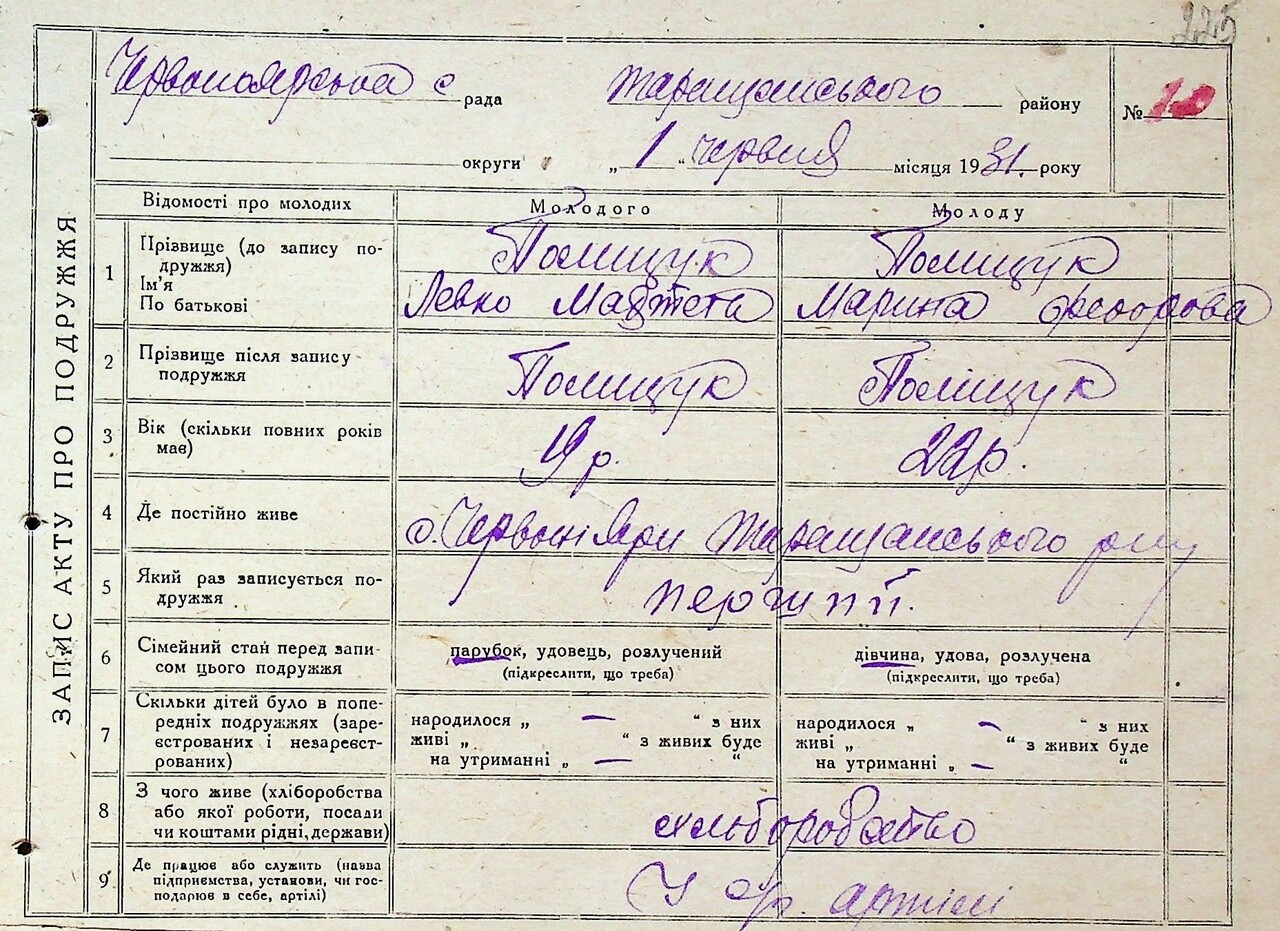 225
Червоноярська с рада Таращанського району № 10
округи „ 1 “ червня місяця 1931. року
ЗАПИС АКТУ ПРО ПОДРУЖЖЯ
Відомості про молодих Молодого Молоду
1 Прізвище (до запису по- Полищук Полищук
дружжя)
Ім'я
По батькові Левко Марина Федорова
2 Прізвище після запису Полищук Поліщук
подружжя
3 Вік (скільки повних років 19 р. 22 р.
має)
4 Де постійно живе с. Червоні Яри Таращанського р-ну
5 Який раз записується по-
дружжя
6 Сімейний стан перед запи- парубок, удовець, розлучений дівчина, удова, розлучена
сом цього подружжя (підкреслити, що треба) (підкреслити, що треба)
7 Скільки дітей було в попе-
редніх подружжях (заре- народилося „ — “ з них народилося „ — “ з них
єстрованих і незареєст- живі „ “ з живих буде живі „ “ з живих буде
рованих) на утриманні „ — “ на утриманні „ — “
8 З чого живе (хліборобства
або якої роботи, посади
чи коштами рідні, держави)
9 Де працює або служить (назва
підприємства, установи, чи гос- У артілі
подарює в себе, артілі)